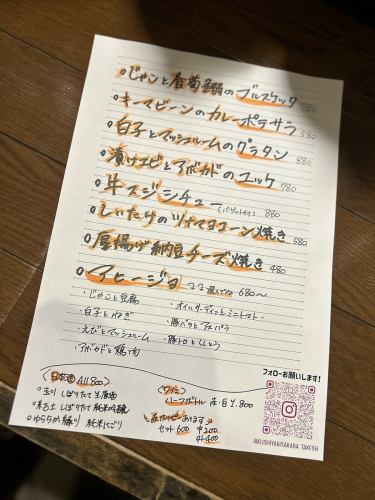 じゃこと春菊のブルスケッタ 780
キーマビーンのカレーポテサラ 580
白子とマッシュルームのグラタン 880
漬けエビとアボカドのユッケ 780
牛スジシチュー(バゲット付) 880
しいたけのツナマヨコーン焼き 580
厚揚げ納豆チーズ焼き 480
アヒージョ 680〜
・じゃこと豆腐
・白子とねぎ
・えびとマッシュルーム
・アボカドと鶏肉
・オイルサーディンとミニトマト
・豚バラとアスパラ
・豚トロとししとう
日本酒 All 800
しぼりたて 生原酒
しぼりたて 純米吟醸
ゆららか 純米にごり
ワイン
ハーフボトル 赤・白 ¥1,800
あります
セット 600
中200
外400
フォローお願いします!
@KUSHIYAKISAKABA_TAKESHI